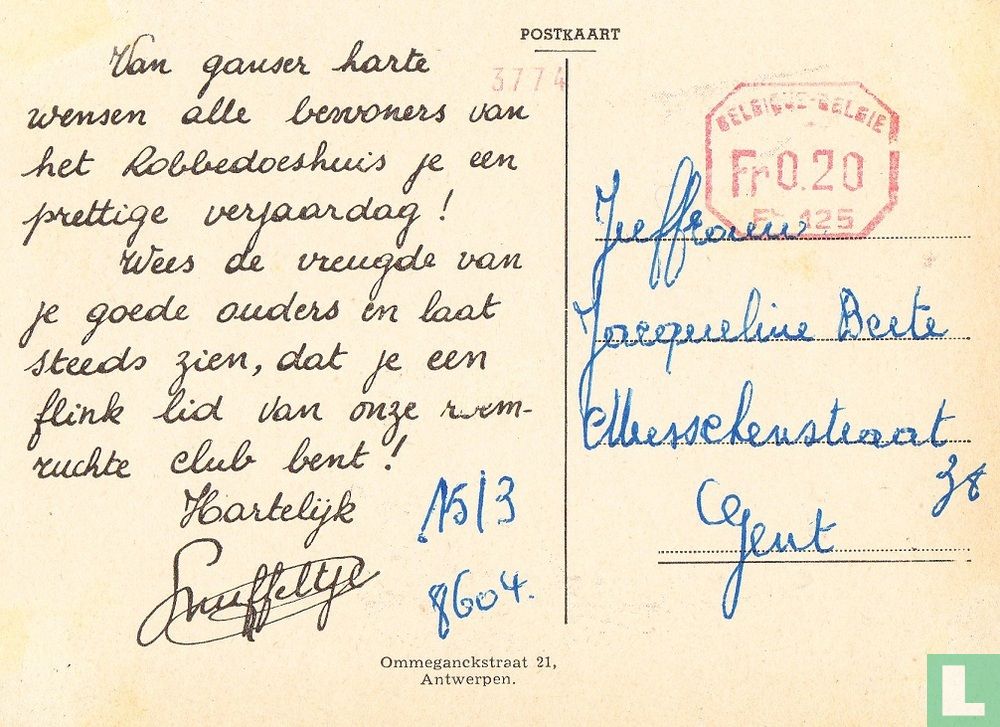 POSTKAART
Van ganser harte
wensen alle bewoners van
het Robbedoeshuis je een
prettige verjaardag!
Wees de vreugde van
je goede ouders en laat
steeds zien, dat je een
flink lid van onze roem-
ruchte club bent!
Hartelijk
Snuffeltje
15/3
8604.
Ommeganckstraat 21,
Antwerpen.
3774
BELGIQUE-BELGIE
Fr 0.20
125
Jueffrouw
Jacqueline Beete
38
Gent
L